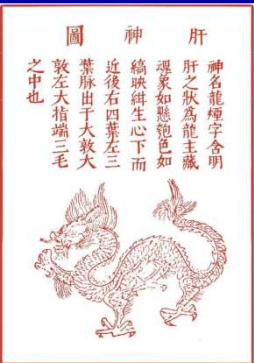 肝神圖
神名龍煙字含明
肝之狀爲龍主藏
魂象如懸匏色如
縞映紺生心下而
近後右四葉左三
葉脉出于大敦大
敦左大指端三毛
之中也